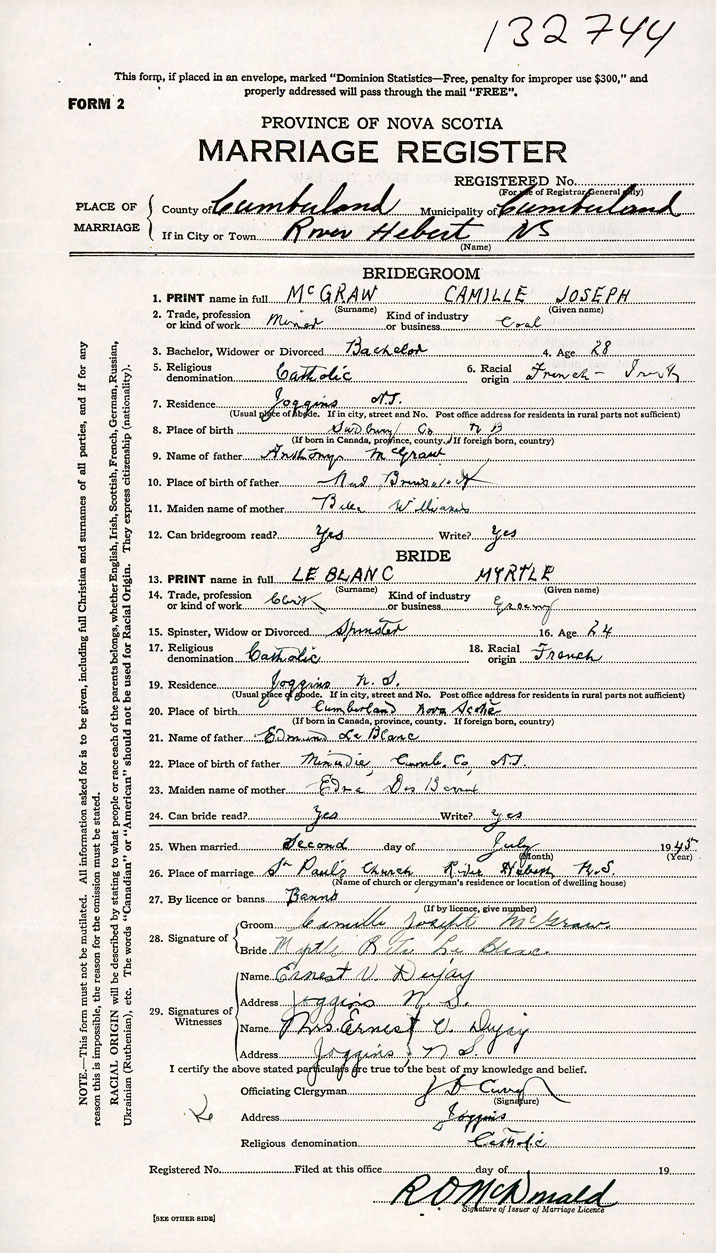 132744
This form, if placed in an envelope, marked "Dominion Statistics—Free, penalty for improper use $300," and
properly addressed will pass through the mail "FREE".
FORM 2
PROVINCE OF NOVA SCOTIA
MARRIAGE REGISTER
REGISTERED No.
(For use of Registrar General only)
PLACE OF MARRIAGE
County of Cumberland Municipality of Cumberland
If in City or Town River Hebert NS
(Name)
BRIDEGROOM
1. PRINT name in full McGRAW CAMILLE JOSEPH
(Surname) (Given name)
2. Trade, profession or kind of work Miner Kind of industry or business Coal
3. Bachelor, Widower or Divorced Bachelor 4. Age 28
5. Religious denomination Catholic 6. Racial origin French - Irish
7. Residence Joggins N.S.
(Usual place of abode. If in city, street and No. Post office address for residents in rural parts not sufficient)
8. Place of birth Co N B
(If born in Canada, province, county. If foreign born, country)
9. Name of father Anthony McGraw
10. Place of birth of father New Brunswick
11. Maiden name of mother Williams
12. Can bridegroom read? Yes Write? Yes
BRIDE
13. PRINT name in full LE BLANC MYRTLE
(Surname) (Given name)
14. Trade, profession or kind of work Clerk Kind of industry or business Grocery
15. Spinster, Widow or Divorced Spinster 16. Age 24
17. Religious denomination Catholic 18. Racial origin French
19. Residence Joggins N.S.
(Usual place of abode. If in city, street and No. Post office address for residents in rural parts not sufficient)
20. Place of birth Cumberland Nova Scotia
(If born in Canada, province, county. If foreign born, country)
21. Name of father Edmund Le Blanc
22. Place of birth of father Minudie, Cumb. Co, N.S.
23. Maiden name of mother Edna Des
24. Can bride read? Yes Write? Yes
25. When married Second day of July 1945
(Month) (Year)
26. Place of marriage St Paul's Church River Hebert N.S.
(Name of church or clergyman's residence or location of dwelling house)
27. By licence or banns Banns
(If by licence, give number)
28. Signature of
Groom Camille Joseph McGraw.
Bride Myrtle Le Blanc.
29. Signatures of Witnesses
Name Ernest V. Dujay
Address Joggins N. S.
Name Mrs. Ernest V. Dujay
Address Joggins, N S.
I certify the above stated particulars are true to the best of my knowledge and belief.
Officiating Clergyman J D Curry
(Signature)
Address Joggins
Religious denomination Catholic
Registered No. Filed at this office day of 19
R O McDonald
Signature of Issuer of Marriage Licence
[SEE OTHER SIDE]
NOTE.—This form must not be mutilated. All information asked for is to be given, including full Christian and surnames of all parties, and if for any
reason this is impossible, the reason for the omission must be stated.
RACIAL ORIGIN will be described by stating to what people or race each of the parents belongs, whether English, Irish, Scottish, French, German, Russian,
Ukrainian (Ruthenian), etc. The words "Canadian" or "American" should not be used for Racial Origin. They express citizenship (nationality).